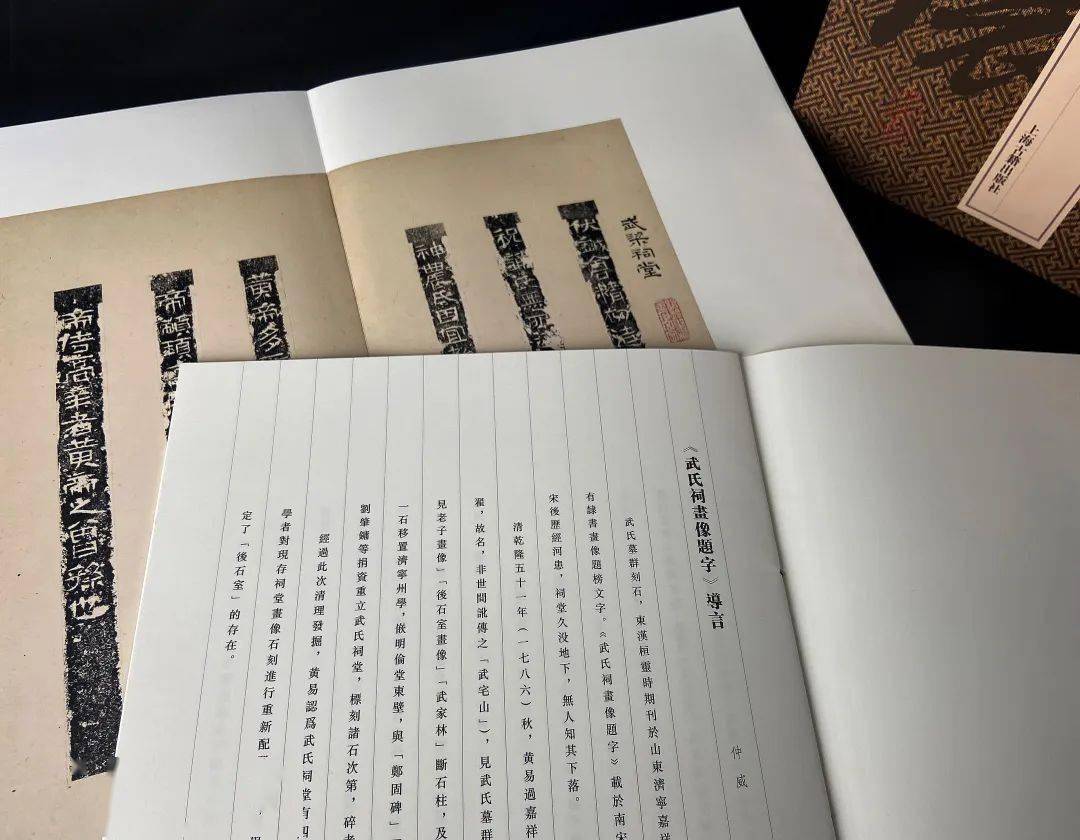 上海古籍出版社
武梁祠堂
伏戲倉精初造
祝誦氏無所
神農氏因宜
黃帝多
帝顓頊
帝俈高辛者黃帝之曾孫也
《武氏祠畫像題字》導言
仲威
武氏墓群刻石，東漢桓靈時期刊於山東濟寧嘉祥
有隸書畫像題榜文字。《武氏祠畫像題字》載於南宋
宋後歷經河患，祠堂久没地下，無人知其下落。
清乾隆五十一年（一七八六）秋，黄易過嘉祥
翟，故名，非世間訛傳之「武宅山」），見武氏墓群
見老子畫像」「後石室畫像」「武家林」斷石柱，及
一石移置濟寧州學，嵌明倫堂東壁，與「鄭固碑」
劉肇鏞等捐資重立武氏祠堂，標刻諸石次第，碎者
經過此次清理發掘，黄易認爲武氏祠堂有四
學者對現存祠堂畫像石刻進行重新配
定了「後石室」的存在。